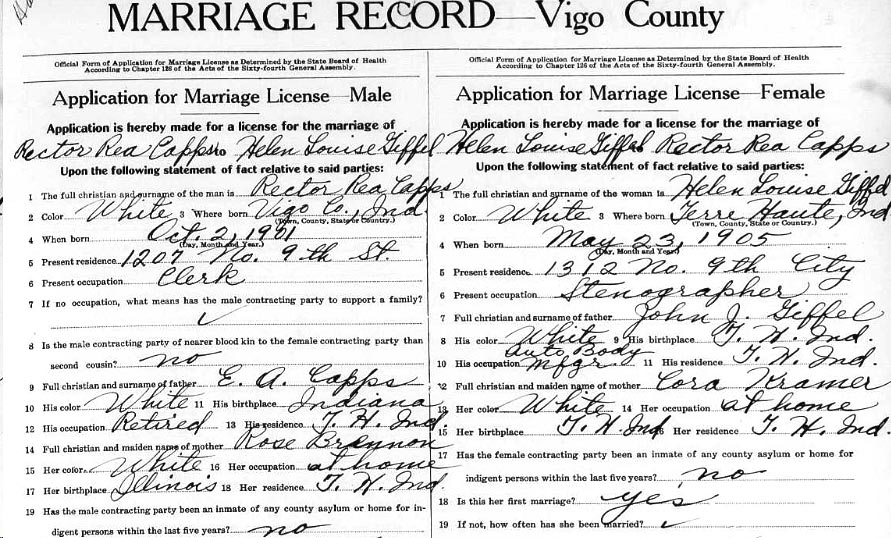 MARRIAGE RECORD—Vigo County
Official Form of Application for Marriage License as Determined by the State Board of Health
According to Chapter 126 of the Acts of the Sixty-fourth General Assembly.
Application for Marriage License—Male
Application is hereby made for a license for the marriage of
Rector Rea Capps to Helen Louise Giffel
Upon the following statement of fact relative to said parties:
1 The full christian and surname of the man is Rector Rea Capps
2 Color White 3 Where born Vigo Co., Ind.
(Town, County, State or Country.)
4 When born Oct. 2, 1901
(Day, Month and Year.)
5 Present residence 1207 No. 9th St.
6 Present occupation Clerk
7 If no occupation, what means has the male contracting party to support a family?
✓
8 Is the male contracting party of nearer blood kin to the female contracting party than
second cousin? no
9 Full christian and surname of father E. A. Capps
10 His color White 11 His birthplace Indiana
12 His occupation Retired 13 His residence T. H. Ind.
14 Full christian and maiden name of mother Rose Brannon
15 Her color White 16 Her occupation at home
17 Her birthplace Illinois 18 Her residence T. H. Ind.
19 Has the male contracting party been an inmate of any county asylum or home for in-
digent persons within the last five years? no
Official Form of Application for Marriage License as Determined by the State Board of Health
According to Chapter 126 of the Acts of the Sixty-fourth General Assembly.
Application for Marriage License—Female
Application is hereby made for a license for the marriage of
Helen Louise Giffel to Rector Rea Capps
Upon the following statement of fact relative to said parties:
1 The full christian and surname of the woman is Helen Louise Giffel
2 Color White 3 Where born Terre Haute, Ind
(Town, County, State or Country.)
4 When born May 23, 1905
(Day, Month and Year)
5 Present residence 1312 No. 9th City
6 Present occupation Stenographer
7 Full christian and surname of father John J. Giffel
8 His color White 9 His birthplace T. H. Ind.
10 His occupation Auto Body Mfgr. 11 His residence T. H. Ind.
12 Full christian and maiden name of mother Cora Kramer
13 Her color White 14 Her occupation at home
15 Her birthplace T. H. Ind 16 Her residence T. H. Ind.
17 Has the female contracting party been an inmate of any county asylum or home for
indigent persons within the last five years? no
18 Is this her first marriage? yes
19 If not, how often has she been married? ✓